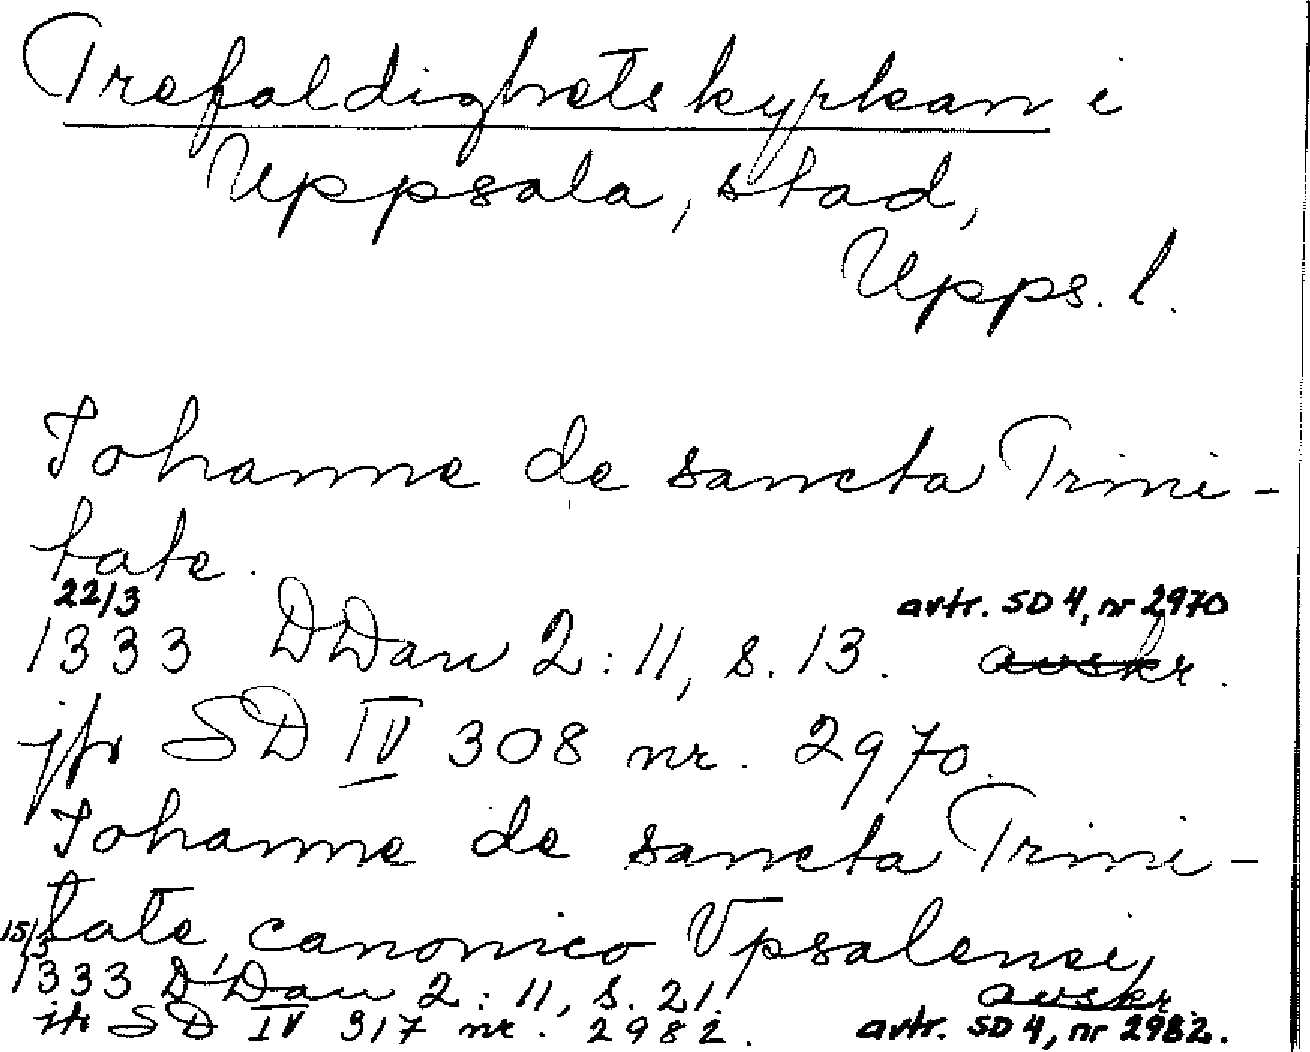 Trefaldighetskyrkan i
Uppsala, stad,
Upps. l.
Iohanne de sancta Trini-
tate.
22/3 avtr. SD 4, nr 2970
1333 DDan 2:11, s. 13. avskr.
jfr SD IV 308 nr. 2970.
Iohanne de sancta Trini-
tate, canonico Vpsalensi,
15/5
1333 DDan 2:11, s. 21. avskr.
jfr SD IV 317 nr. 2982. avtr. SD 4, nr 2982.